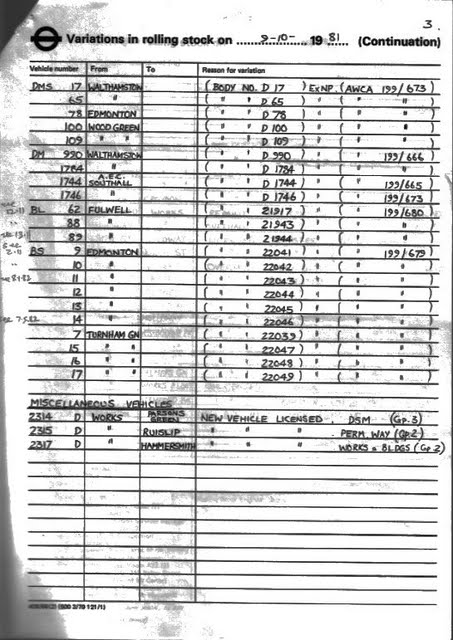 3.
Variations in rolling stock on 9-10- 1981 (Continuation)
Vehicle number From To Reason for variation
DMS 17 WALTHAMSTON (BODY NO. D 17) EXNP. (AWCA 199/673)
65 " ( " " D 65 ) " ( " " )
78 EDMONTON ( " " D 78 ) " ( " " )
100 WOOD GREEN ( " " D 100 ) " ( " " )
109 " " ( " " D 109 ) " ( " " )
DM 990 WALTHAMSTON ( " " D 990 ) " ( " 199/666)
1784 " ( " " D 1784 ) " ( " " )
1744 A.E.C. SOUTHALL ( " " D 1744 ) " ( " 199/665)
1746 " ( " " D 1746 ) " ( " 199/673)
BL 62 FULWELL ( " " 21917 ) " ( " 199/680)
88 " ( " " 21943 ) " ( " " )
89 " ( " " 21944 ) " ( " " )
BS 9 EDMONTON ( " " 22041 ) " ( " 199/679)
10 " ( " 22042 ) " ( " " )
11 " ( " " 22043 ) " ( " " )
12 " ( " " 22044 ) " ( " " )
13 " ( " " 22045 ) " ( " " )
14 " ( " " 22046 ) " ( " " )
7 TURNHAM GN ( " " 22039 ) " ( " " )
15 " " ( " " 22047 ) " ( " " )
16 " " ( " " 22048 ) " ( " " )
17 " " ( " " 22049 ) " ( " " )
MISCELLANEOUS VEHICLES
2314 D WORKS PARSONS GREEN NEW VEHICLE LICENSED. DSM (GP.3)
2315 D " RUISLIP " " " PERM. WAY (GP.2)
2317 D " HAMMERSMITH " " " WORKS & BLDGS (GP.2)